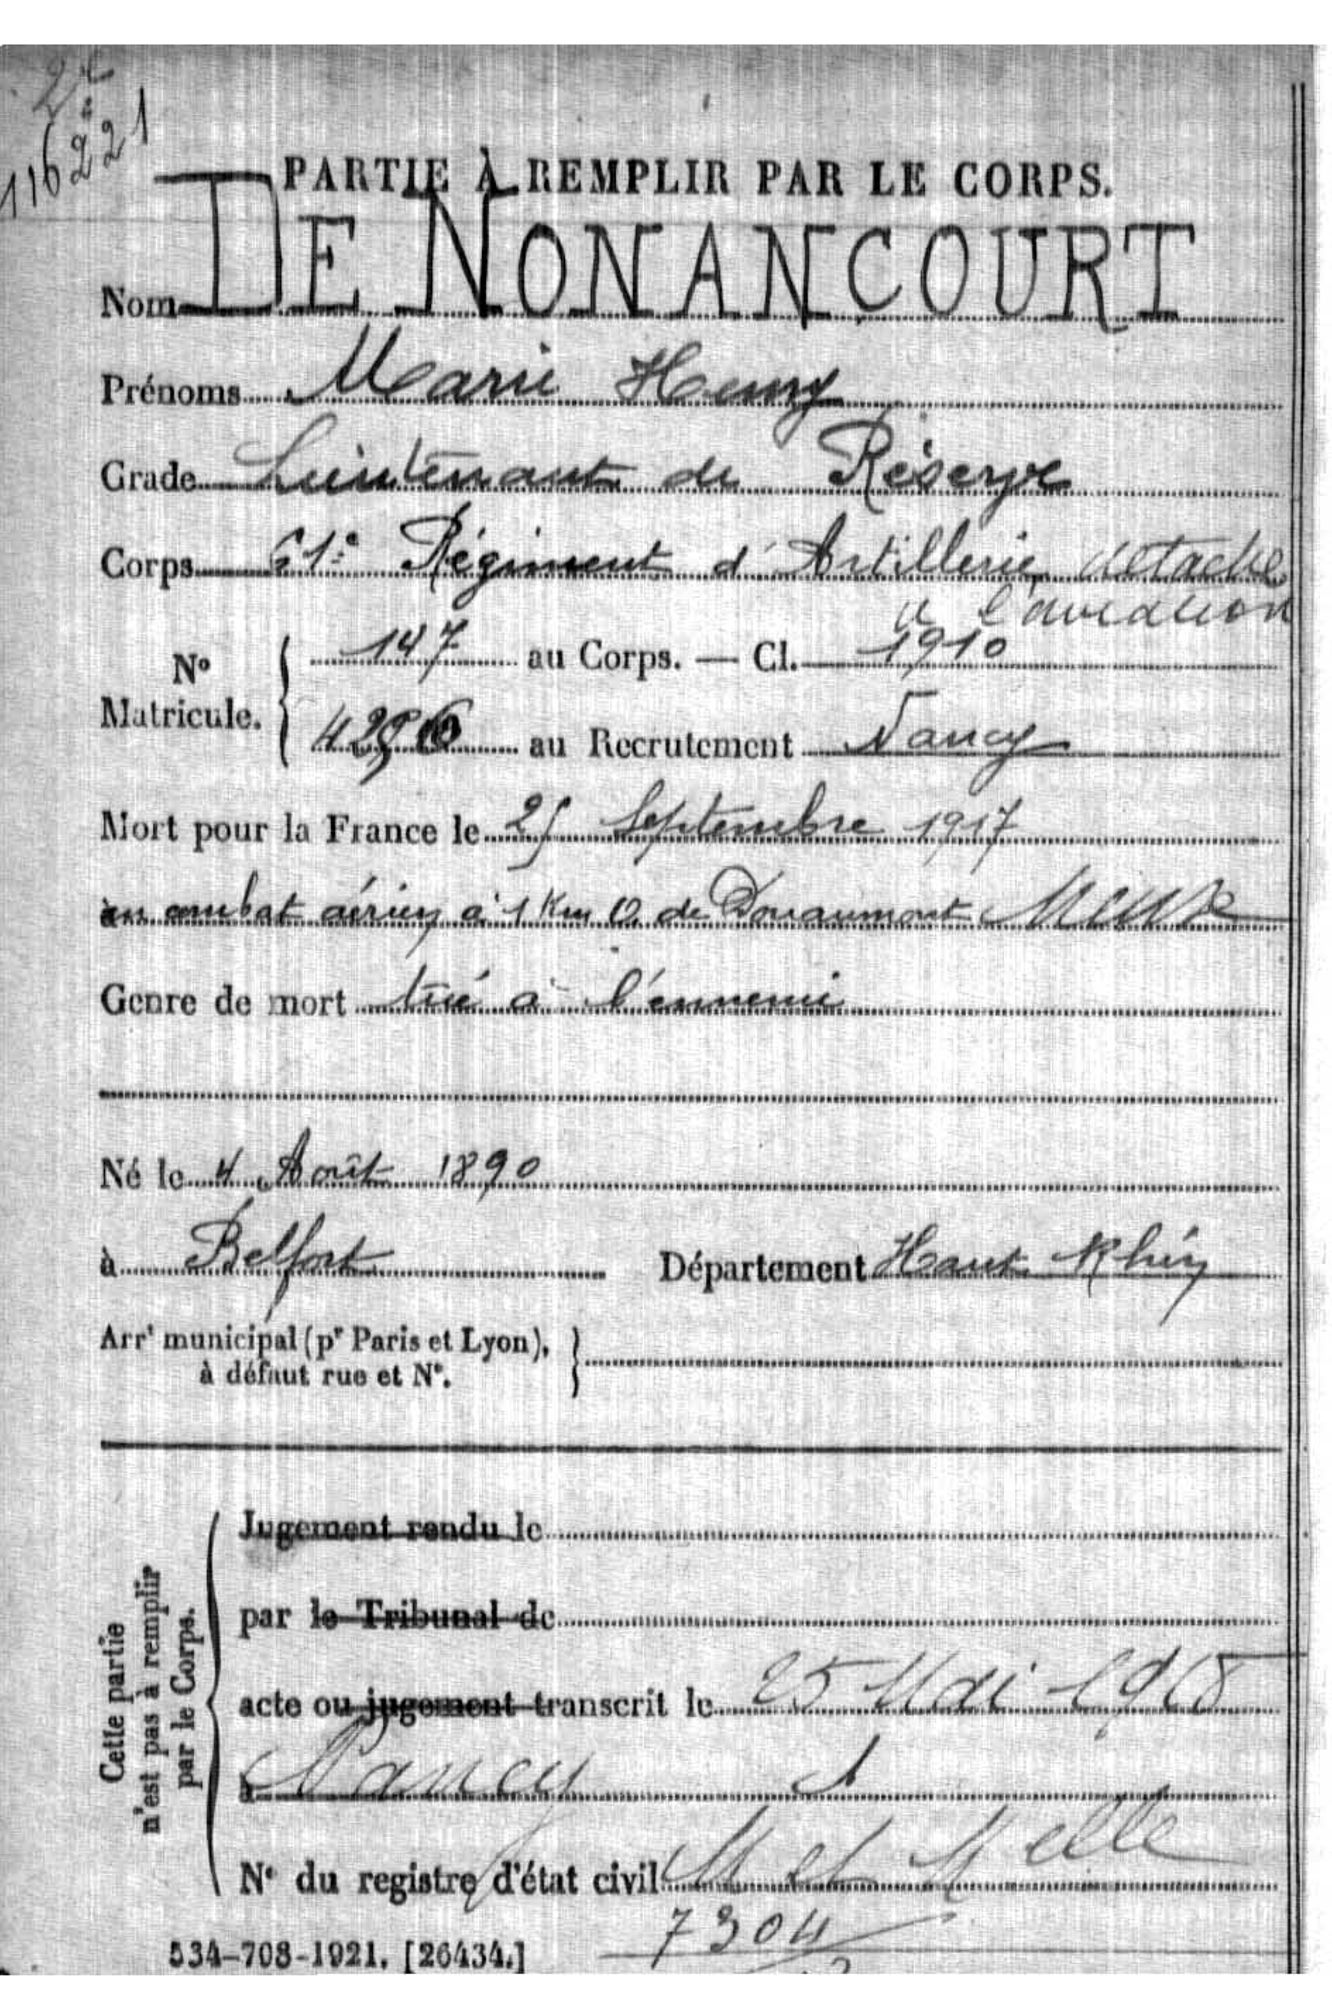 116221
PARTIE À REMPLIR PAR LE CORPS.
Nom DE NONANCOURT
Prénoms Marie Henry
Grade Lieutenant de Réserve
Corps 61e Régiment d'Artillerie détaché
à l'aviation
N° Matricule. 147 au Corps. — Cl. 1910
au Recrutement Nancy
Mort pour la France le 25 Septembre 1917
en combat aérien à 1 Km O. de Douaumont Meuse
Genre de mort tué à l'ennemi
Né le 4 Août 1890
à Belfort Département Haut Rhin
Arrt municipal (pr Paris et Lyon),
à défaut rue et N°.
Cette partie
n'est pas à remplir
par le Corps.
Jugement rendu le
par le Tribunal de
acte ou jugement transcrit le 25 Mai 1918
à Nancy
N° du registre d'état civil M et Melle
7304
534-708-1921. [26434.]